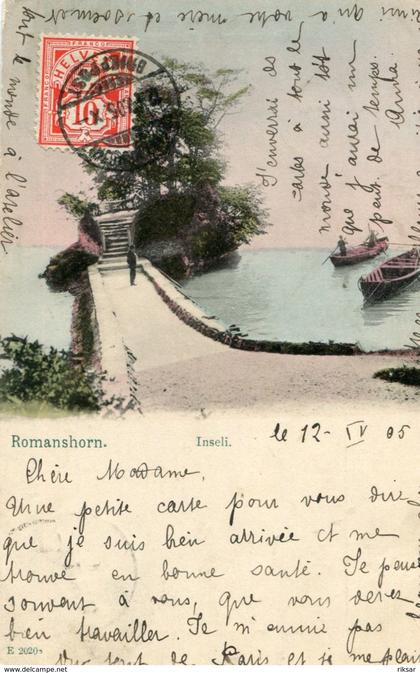 HELVETIA
FRANCO
10
Romanshorn.
Inseli.
le 12- IV 05
Chère Madame,
Une petite carte pour vous dire
que je suis bien arrivée et me
trouve en bonne santé. Je pense
souvent à vous, que vous devez
bien travailler. Je m'ennuie pas
du tout de Paris et je me plais
E 2020
J'enverrai des
cartes à tout le
monde aussi tôt
que j'aurai un
peu de temps.
Anna
tout le monde à l'atelier
qu'à votre mère et
riksar